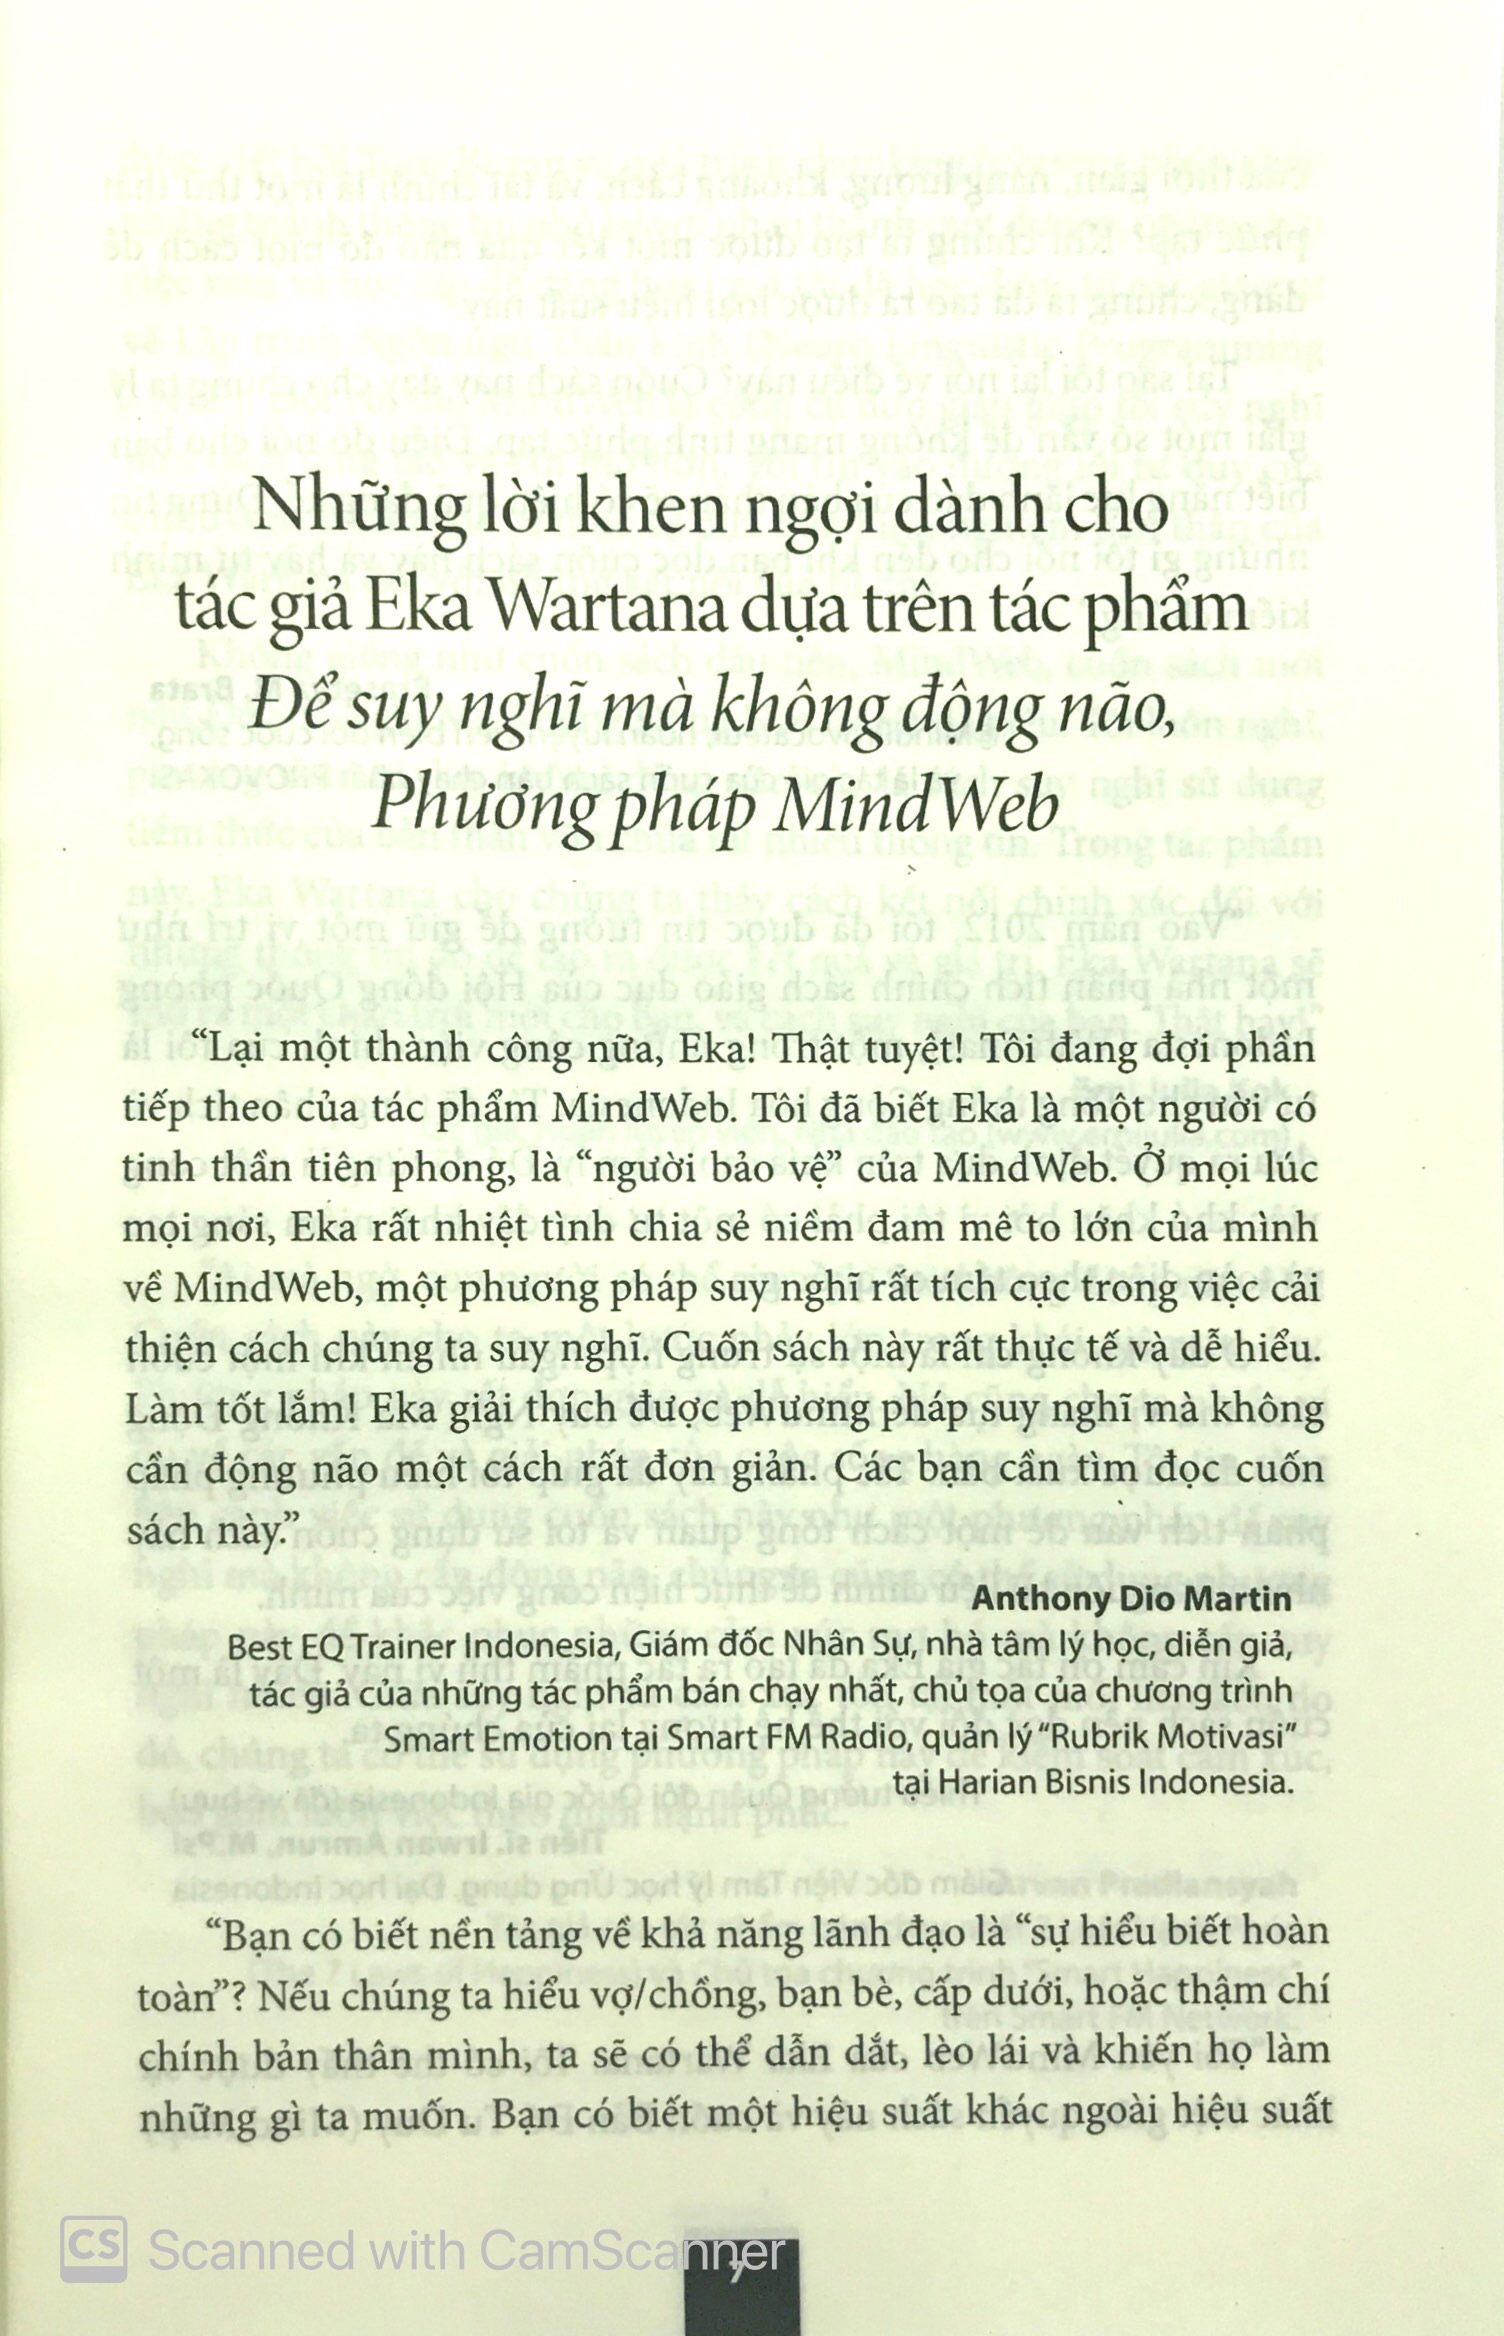 Những lời khen ngợi dành cho
tác giả Eka Wartana dựa trên tác phẩm
Để suy nghĩ mà không động não,
Phương pháp MindWeb
“Lại một thành công nữa, Eka! Thật tuyệt! Tôi đang đợi phần
tiếp theo của tác phẩm MindWeb. Tôi đã biết Eka là một người có
tinh thần tiên phong, là “người bảo vệ” của MindWeb. Ở mọi lúc
mọi nơi, Eka rất nhiệt tình chia sẻ niềm đam mê to lớn của mình
về MindWeb, một phương pháp suy nghĩ rất tích cực trong việc cải
thiện cách chúng ta suy nghĩ. Cuốn sách này rất thực tế và dễ hiểu.
Làm tốt lắm! Eka giải thích được phương pháp suy nghĩ mà không
cần động não một cách rất đơn giản. Các bạn cần tìm đọc cuốn
sách này.”
Anthony Dio Martin
Best EQ Trainer Indonesia, Giám đốc Nhân Sự, nhà tâm lý học, diễn giả,
tác giả của những tác phẩm bán chạy nhất, chủ tọa của chương trình
Smart Emotion tại Smart FM Radio, quản lý “Rubrik Motivasi”
tại Harian Bisnis Indonesia.
“Bạn có biết nền tảng về khả năng lãnh đạo là “sự hiểu biết hoàn
toàn”? Nếu chúng ta hiểu vợ/chồng, bạn bè, cấp dưới, hoặc thậm chí
chính bản thân mình, ta sẽ có thể dẫn dắt, lèo lái và khiến họ làm
những gì ta muốn. Bạn có biết một hiệu suất khác ngoài hiệu suất
7
CS Scanned with CamScanner